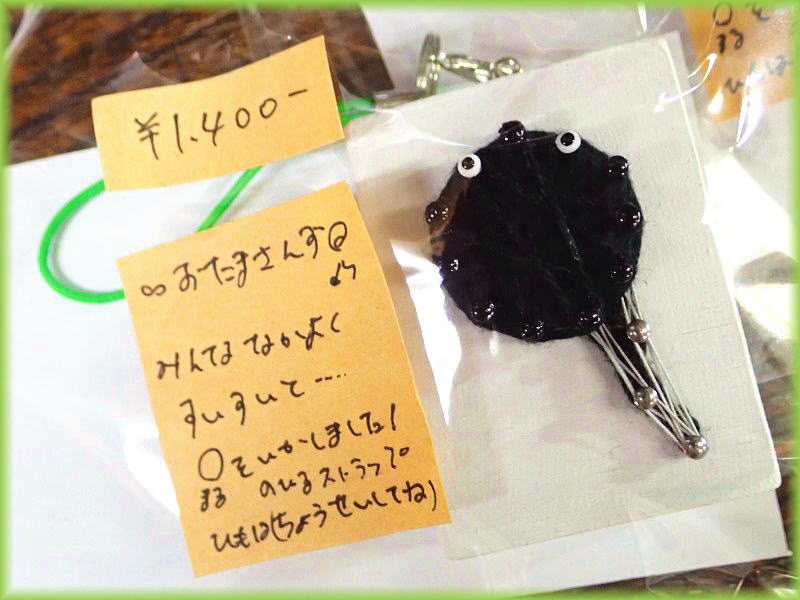 ¥1.400-
∞おたまさんず@
♪
みんなでなかよく
すいすいと‥‥
○をいかしました!
まる のびるストラップ
ひもは(ちょうせいしてね)
○を
まる